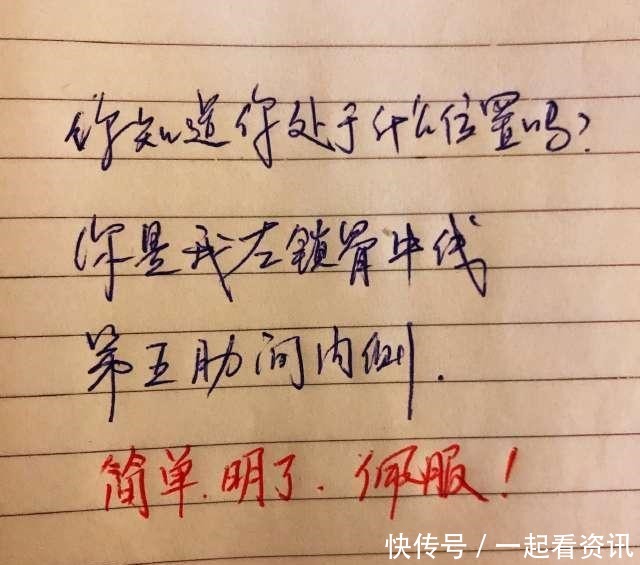 你知道你处于什么位置吗？
你是我左锁骨中线
第五肋间内侧.
简单.明了.佩服！
快传号/一起看资讯